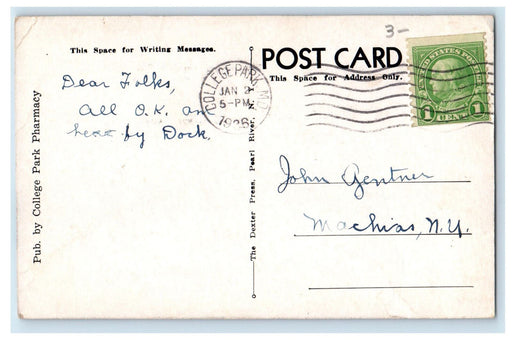 3-
This Space for Writing Messages.
POST CARD
This Space for Address Only.
COLLEGE PARK MD.
JAN 2
5-PM
1936
UNITED STATES POSTAGE
1 CENT 1
Dear Folks,
All O.K. on
here by Dock.
John Gentner
Machias, N.Y.
Pub. by College Park Pharmacy
The Dexter Press, Pearl River, N.Y.